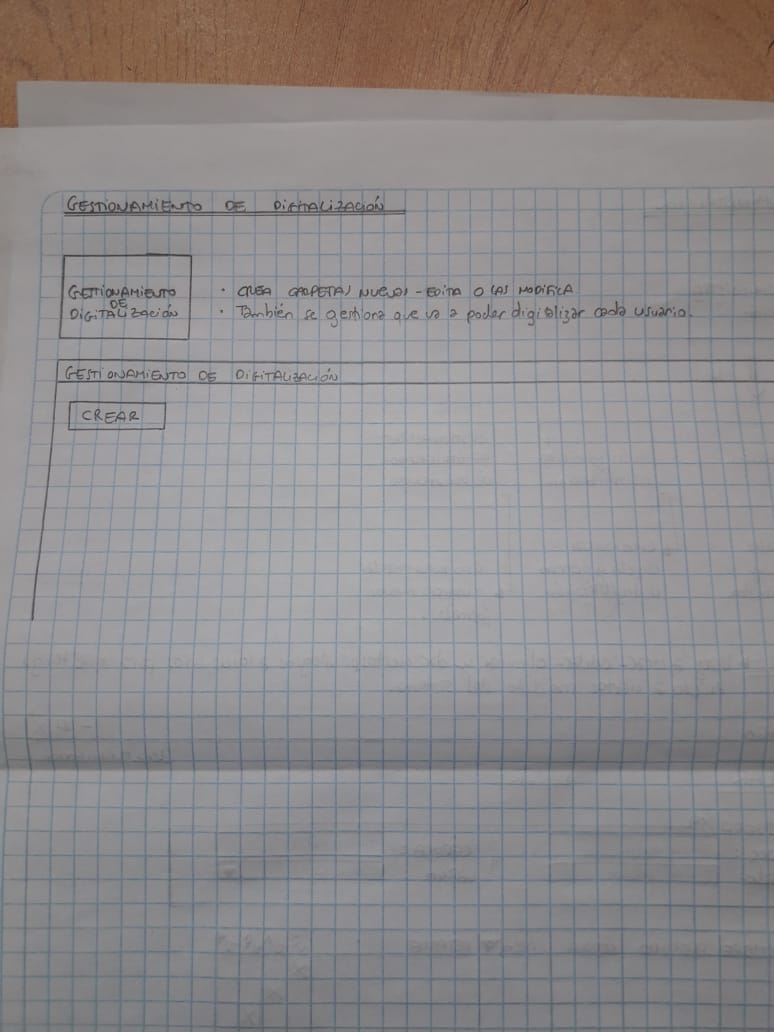 GESTIONAMIENTO DE DIGITALIZACIÓN
GESTIONAMIENTO
DE
DIGITALIZACIÓN
• CREA CARPETAS NUEVAS - EDITA O LAS MODIFICA
• También se gestiona que va a poder digitalizar cada usuario.
GESTIONAMIENTO DE DIGITALIZACIÓN
CREAR